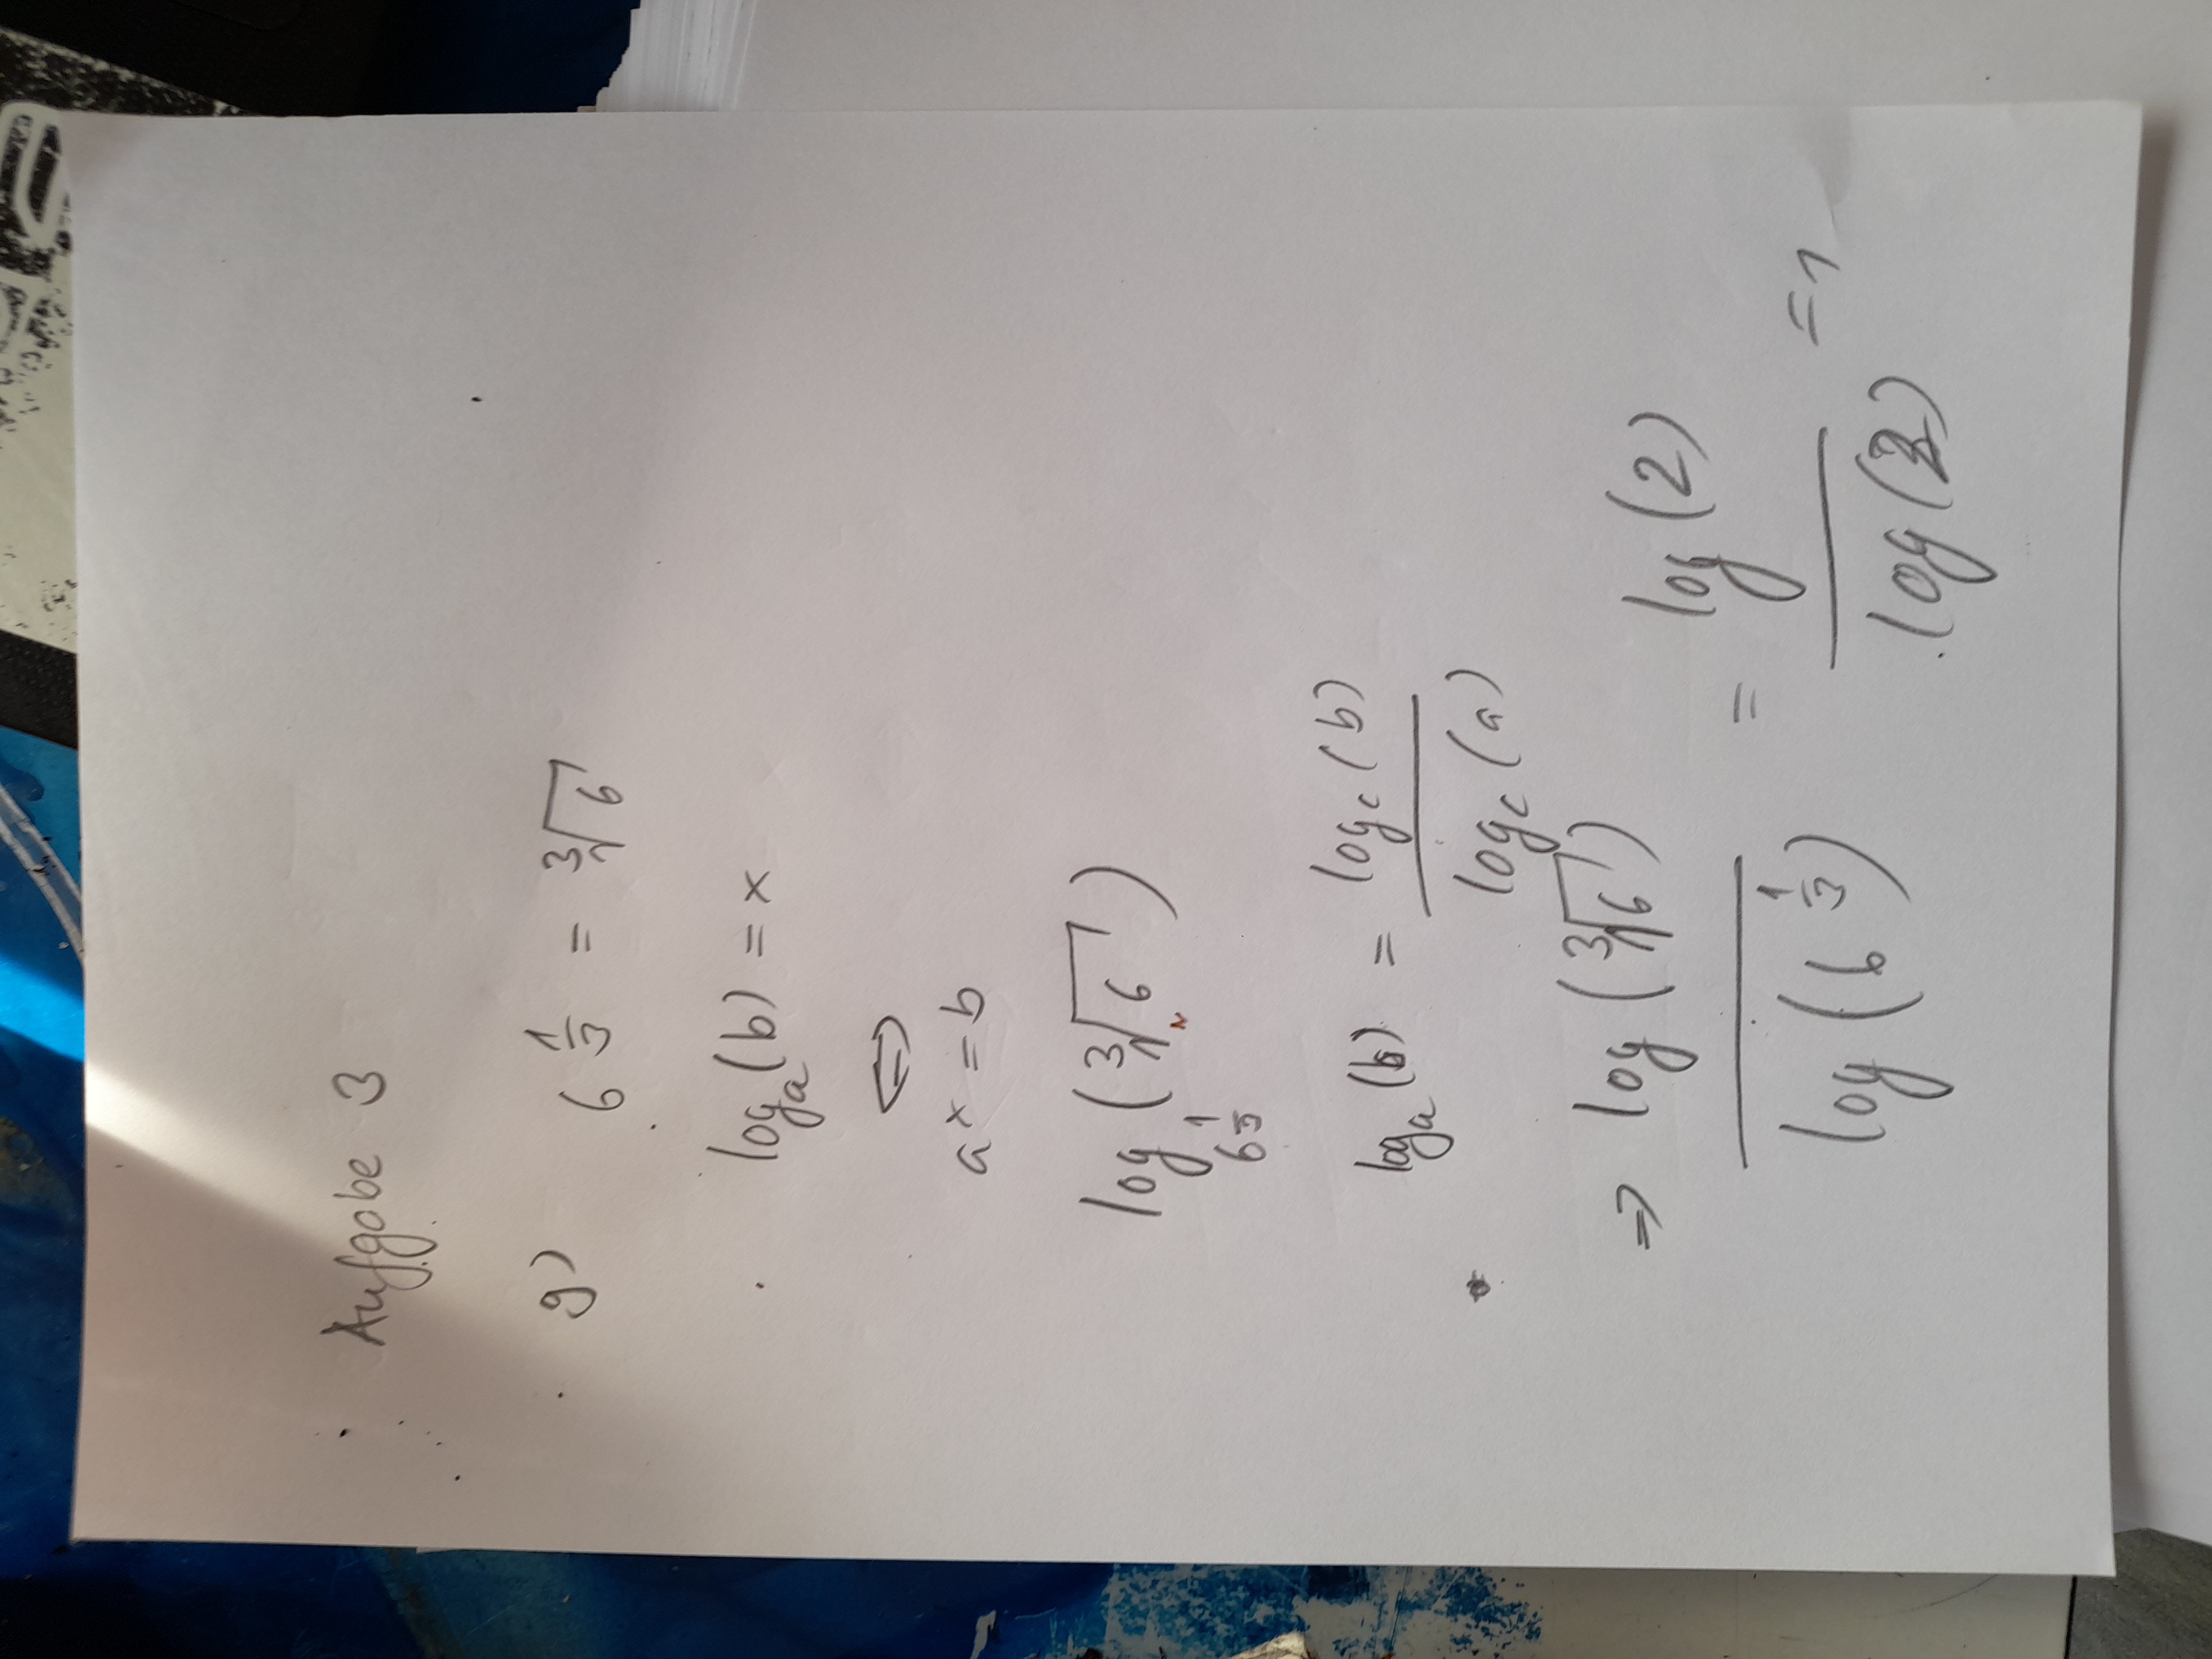 Aufgabe 3
g) 6^(1/3) = ∛6
log_a (b) = x
⇔
a^x = b
log_(6^(1/3)) (∛6)
log_a (b) = log_c (b) / log_c (a)
⇒ log (∛6) / log (6^(1/3)) = log (2) / log (2) = 1